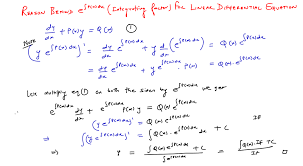 REASON BEHIND e^∫P(x)dx (Integrating factor) For LINEAR Differential Equation
dy/dx + P(x)y = Q(x) ①
Note
(y e^∫P(x)dx)' = dy/dx e^∫P(x)dx + y d/dx (e^∫P(x)dx)
= dy/dx e^∫P(x)dx + y e^∫P(x)dx · P(x) = Q(x) e^∫P(x)dx
Let multiply eq ① on both the sides by e^∫P(x)dx we get
e^∫P(x)dx dy/dx + e^∫P(x)dx P(x) y = Q(x) e^∫P(x)dx
⇒ (y e^∫P(x)dx)' = Q(x) e^∫P(x)dx
⇒ ∫(y e^∫P(x)dx)' = ∫Q(x) e^∫P(x)dx dx + C
⇒ y = ∫Q(x) e^∫P(x)dx dx + C / e^∫P(x)dx = ∫Q(x) · IF + C / IF